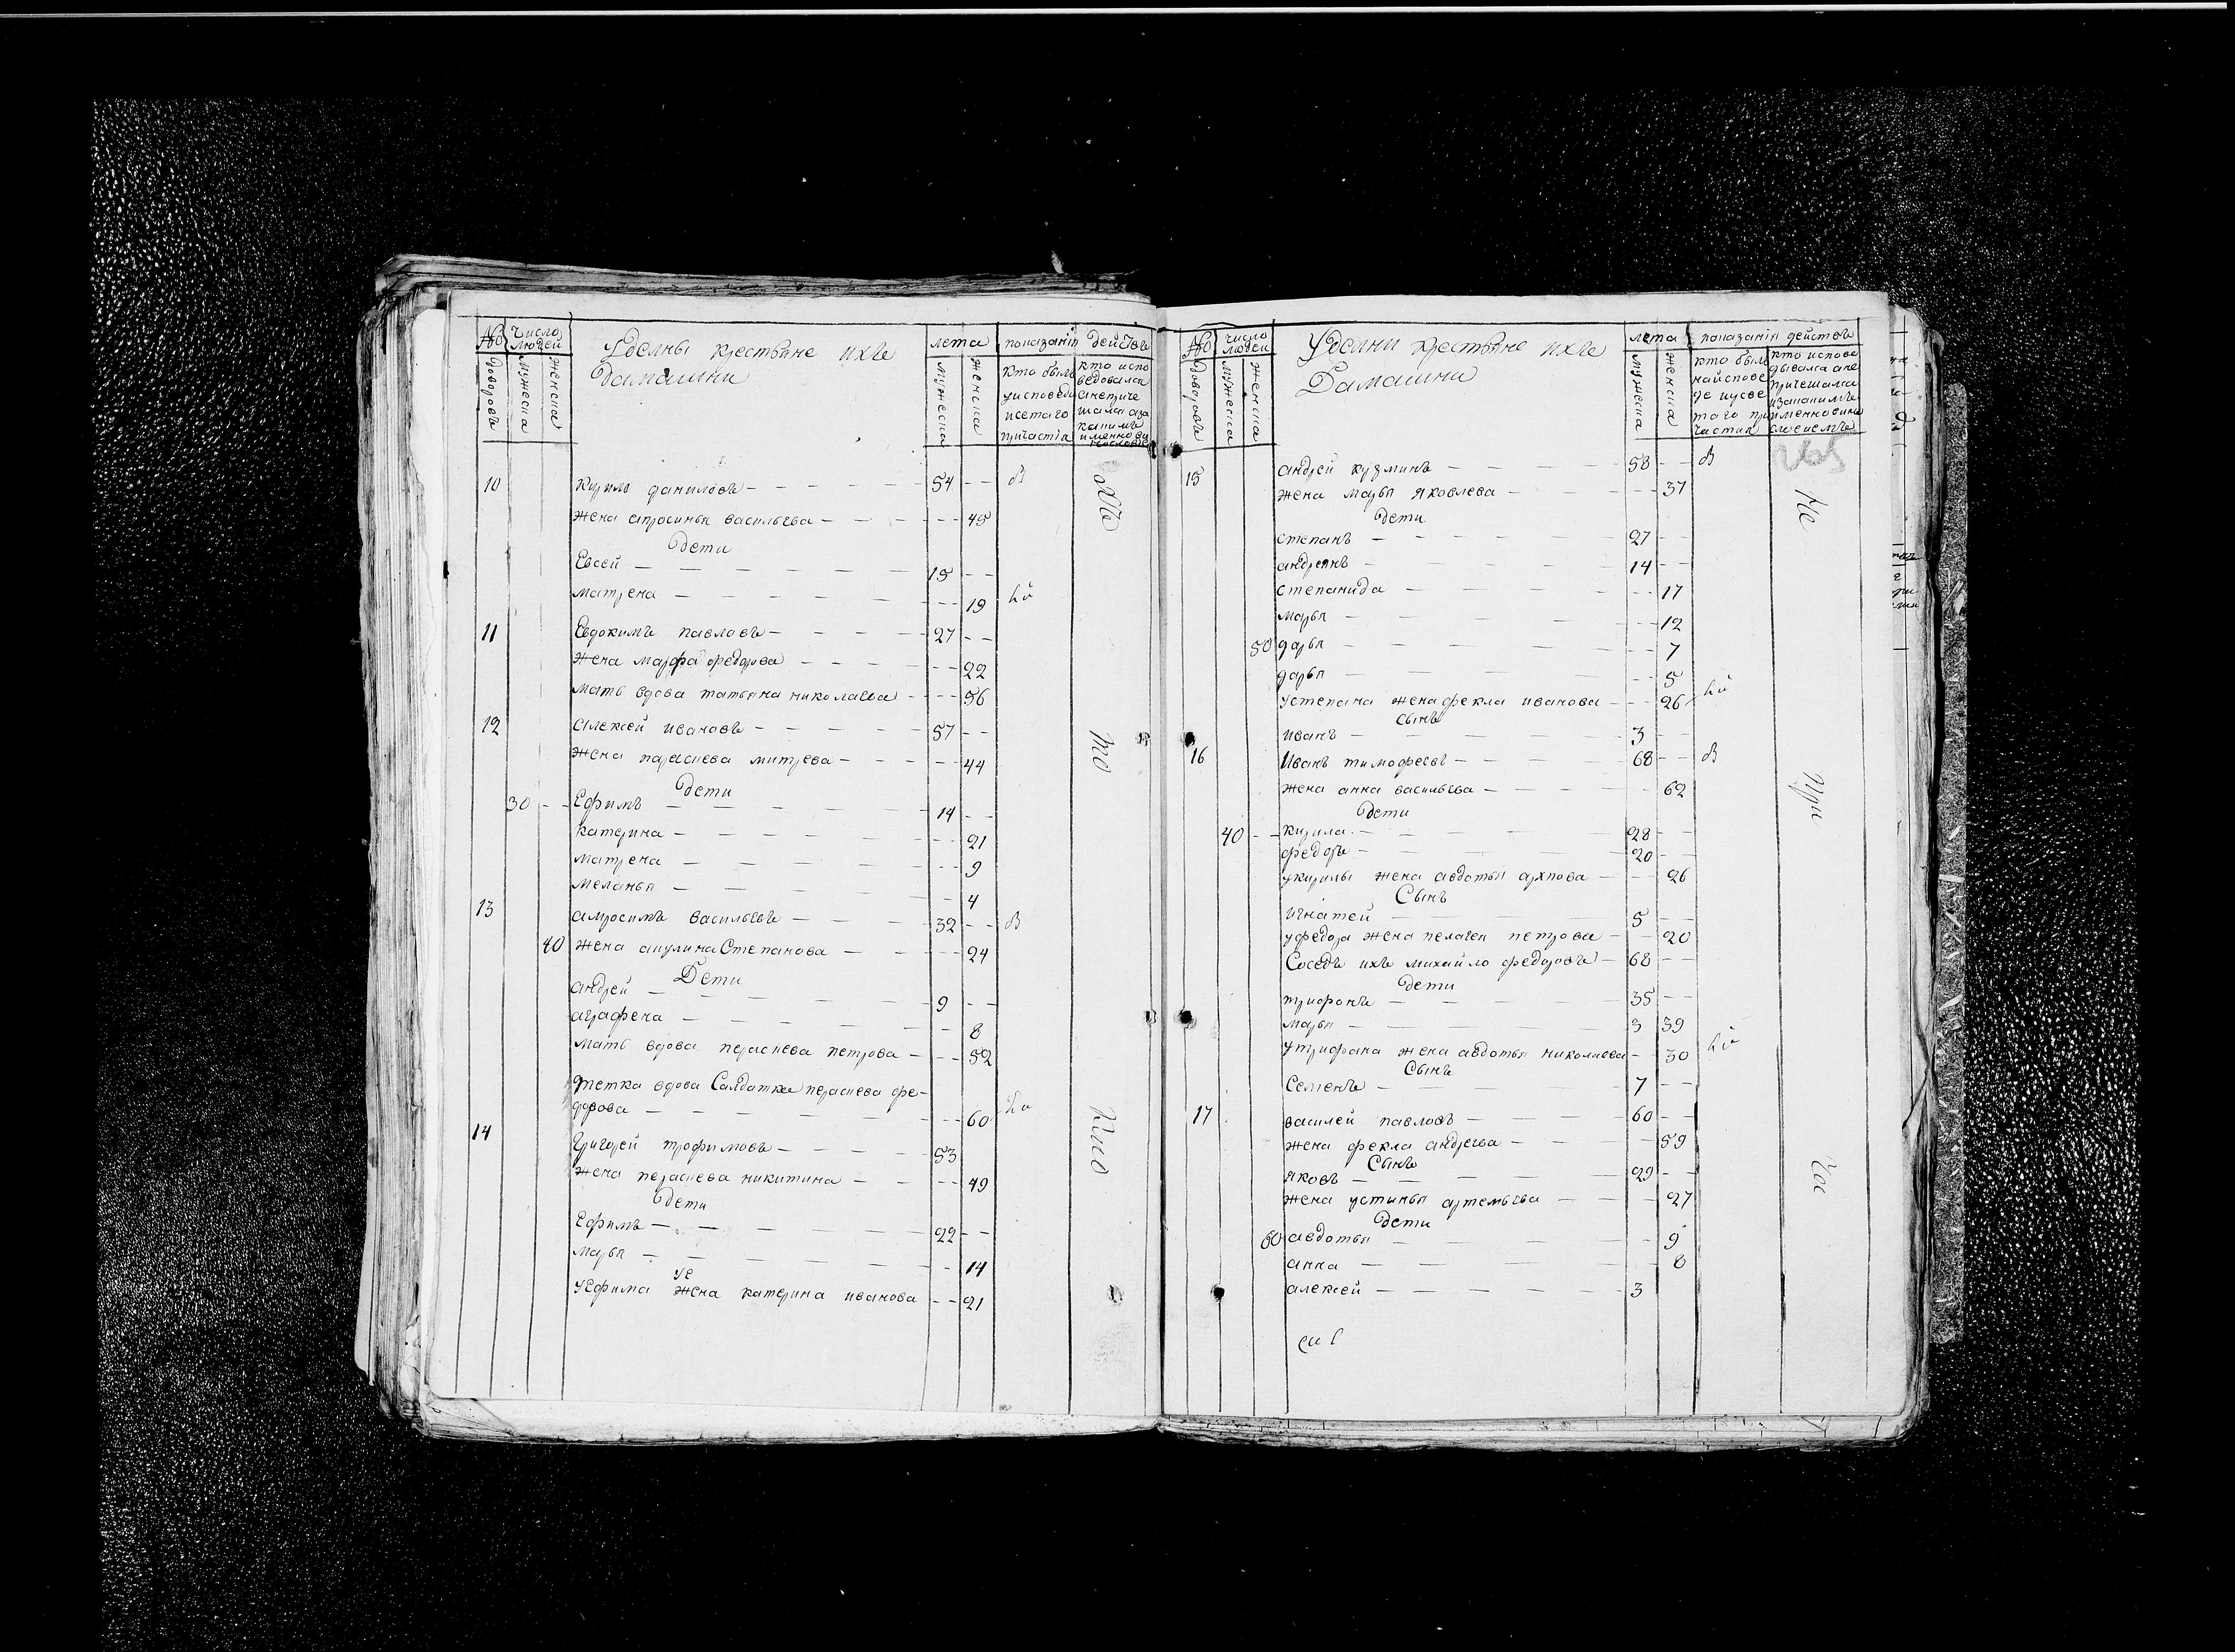 № Число людей
Уделны крестьяне ихъ
Дамашни
лета
показанія действъ
дворовъ
мужеска
женска
мужеска
женска
кто былъ
кто испо
ведовался
анеприче
10 Кирило даниловъ — 54
жена апросинья васильева — 45
Дети
Евсей — 15
матрена — 19
11 Евдокимъ павловъ — 27
жена марфа федорова — 22
мать вдова татьяна николаева — 56
12 Алексей ивановъ — 57
жена параскева митрева — 44
Дети
30 Ефимъ — 14
катерина — 21
матрена — 9
меланья — 4
13 амросимъ васильевъ — 32 В
40 жена акулина Степанова — 24
Дети
андрей — 9
аграфена — 8
мать вдова параскева петрова — 52
тетка вдова Салдатка параскева фе-
дорова — 60
14 Григорей трофимовъ — 53
жена параскева никитина — 49
Дети
Ефимъ — 22
марья — 14
уЕфима жена катерина иванова — 21
№ число людей
Уделни крестьяне ихъ
Дамашни
лета
показанія действъ
дворовъ
мужеска
женска
мужеска
женска
кто былъ
кто испове
дывался ане
причешался
15 андрей кузминъ — 58 В
жена марья яковлева — 37
Дети
степанъ — 27
андреянъ — 14
степанида — 17
марья — 12
50 дарья — 7
дарья — 5
устепана жена фекла иванова — 26
сынъ
иванъ — 3
16 Иванъ тимофеевъ — 68 В
жена анна васильева — 62
Дети
40 кирила — 28
федоръ — 20
укирилы жена авдотья архпова — 26
Сынъ
игнатей — 5
уфедора жена пелагея петрова — 20
Соседъ ихъ михайло федоровъ — 68
Дети
трифонъ — 35
марья — 3 39
утрифана жена авдотья николаева — 30
Сынъ
Семенъ — 7
17 василей павловъ — 60
жена фекла андреева — 59
Сынъ
яковъ — 29
жена устинья артемьева — 27
Дети
60 авдотья — 9
анна — 8
алексей — 3